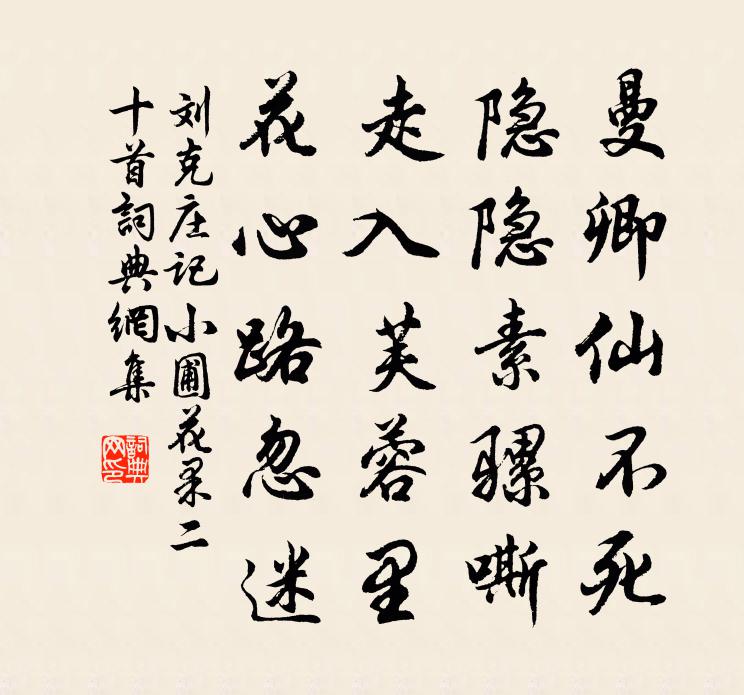 曼卿仙不死
隐隐素骡嘶
走入芙蓉里
花心路忽迷
刘克庄记小圃花果二
十首詞典網集
詞典
网印